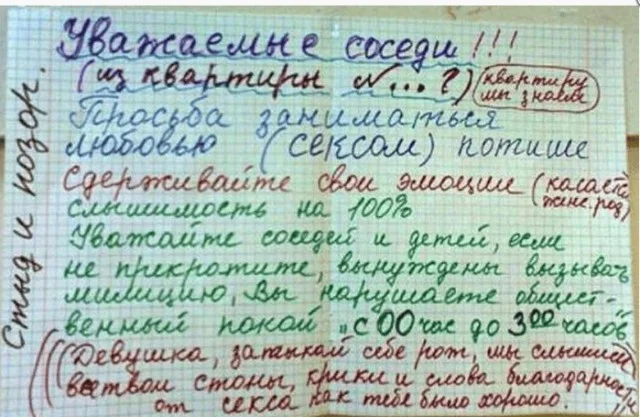 Уважаемые соседи!!!
(из квартиры №...?) (квартиру мы знаем)
Просьба заниматься
любовью (сексом) потише
Сдерживайте свои эмоции (касается женс. род)
слышимость на 100%
Уважайте соседей и детей, если
не прекратите, вынуждены вызывать
милицию, Вы нарушаете общест-
венный покой "с 00 час до 3 00 часов"
(((Девушка, затыкай себе рот, мы слышим
все твои стоны, крики и слова благодарности
от секса как тебе было хорошо.
Стыд и позор.